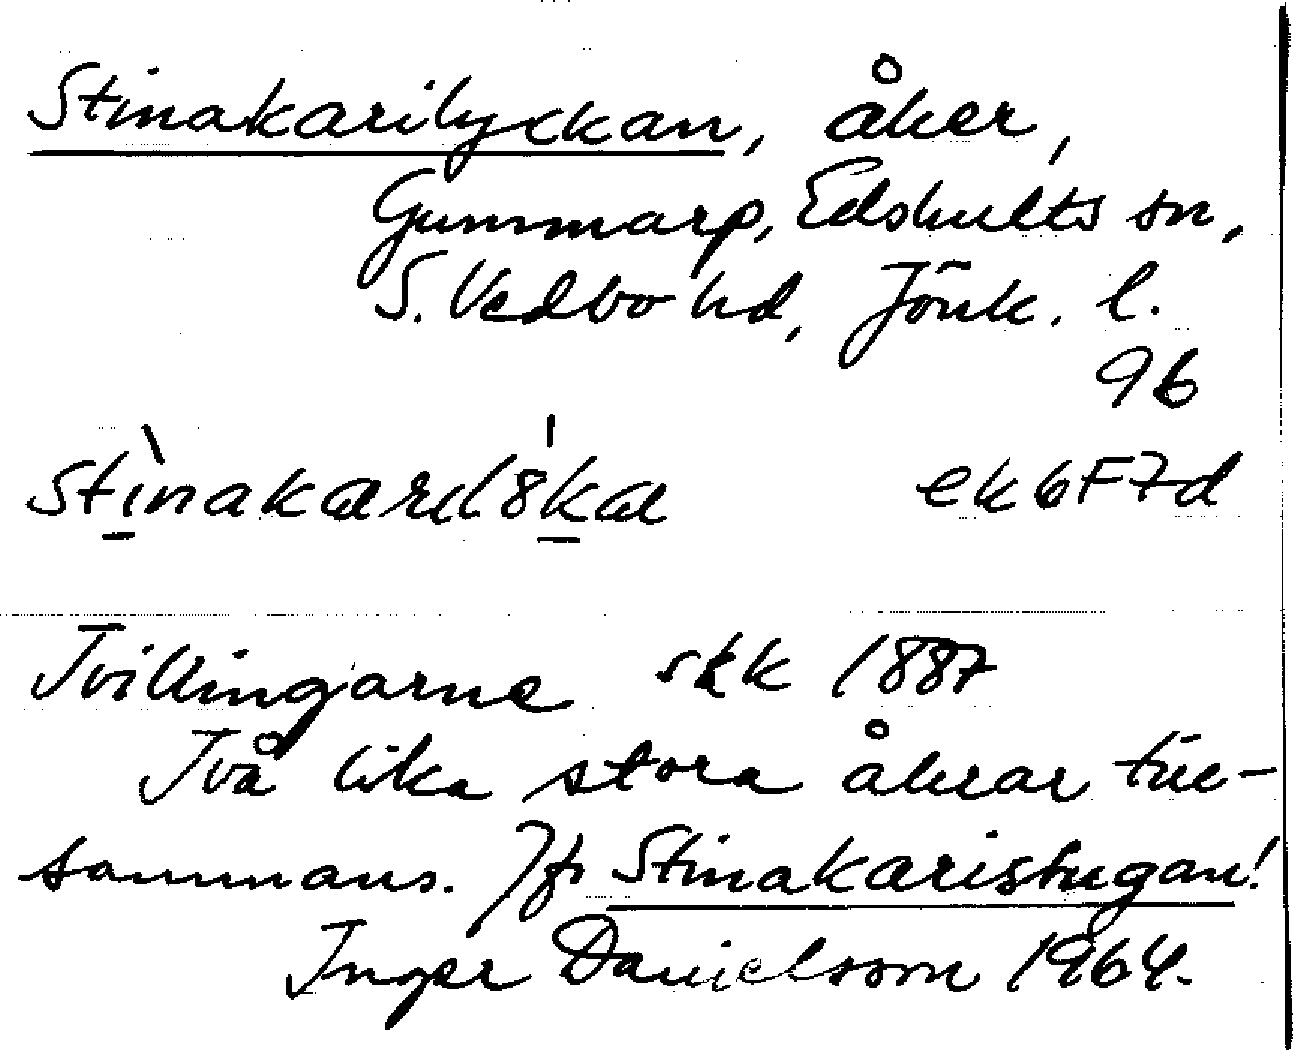 Stinakarilyckan, åker,
Gummarp, Edshults sn,
S. Vedbo hd, Jönk. l.
96
ek 6F7d
Tvillingarne skk 1887
Två lika stora åkrar till-
sammans. Jfr Stinakaristugan!
Inger Danielsson 1964.